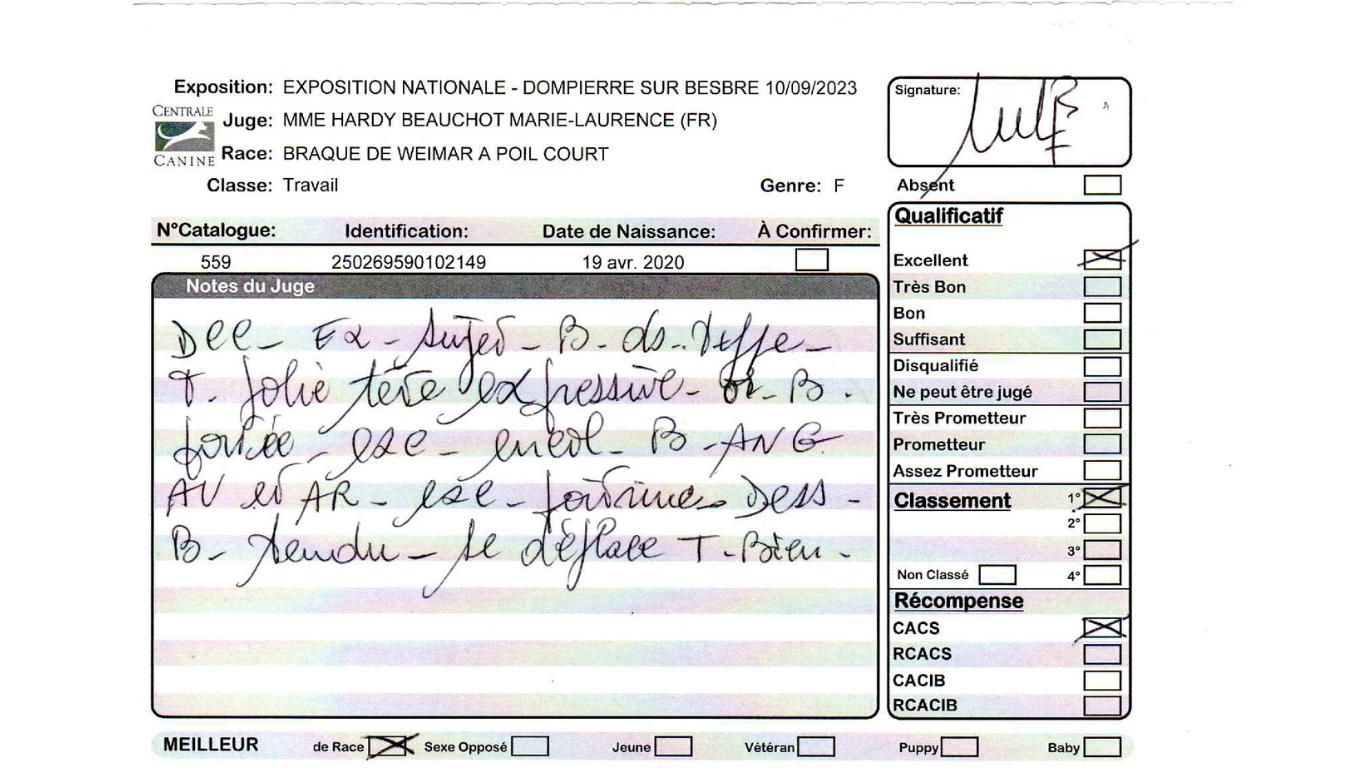 Exposition: EXPOSITION NATIONALE - DOMPIERRE SUR BESBRE 10/09/2023
CENTRALE CANINE
Juge: MME HARDY BEAUCHOT MARIE-LAURENCE (FR)
Race: BRAQUE DE WEIMAR A POIL COURT
Classe: Travail Genre: F
Signature:
Absent
N°Catalogue: Identification: Date de Naissance: À Confirmer:
559 250269590102149 19 avr. 2020
Notes du Juge
Ex - Sujet - B. ds. Type -
T. Jolie tête expressive - B.
portée - exc - encol - B - ANG
AV et AR - exc - poitrine - Dess -
B - tendu - se déplace T - Bien -
Qualificatif
Excellent
Très Bon
Bon
Suffisant
Disqualifié
Ne peut être jugé
Très Prometteur
Prometteur
Assez Prometteur
Classement 1°
2°
3°
Non Classé 4°
Récompense
CACS
RCACS
CACIB
RCACIB
MEILLEUR de Race Sexe Opposé Jeune Vétéran Puppy Baby